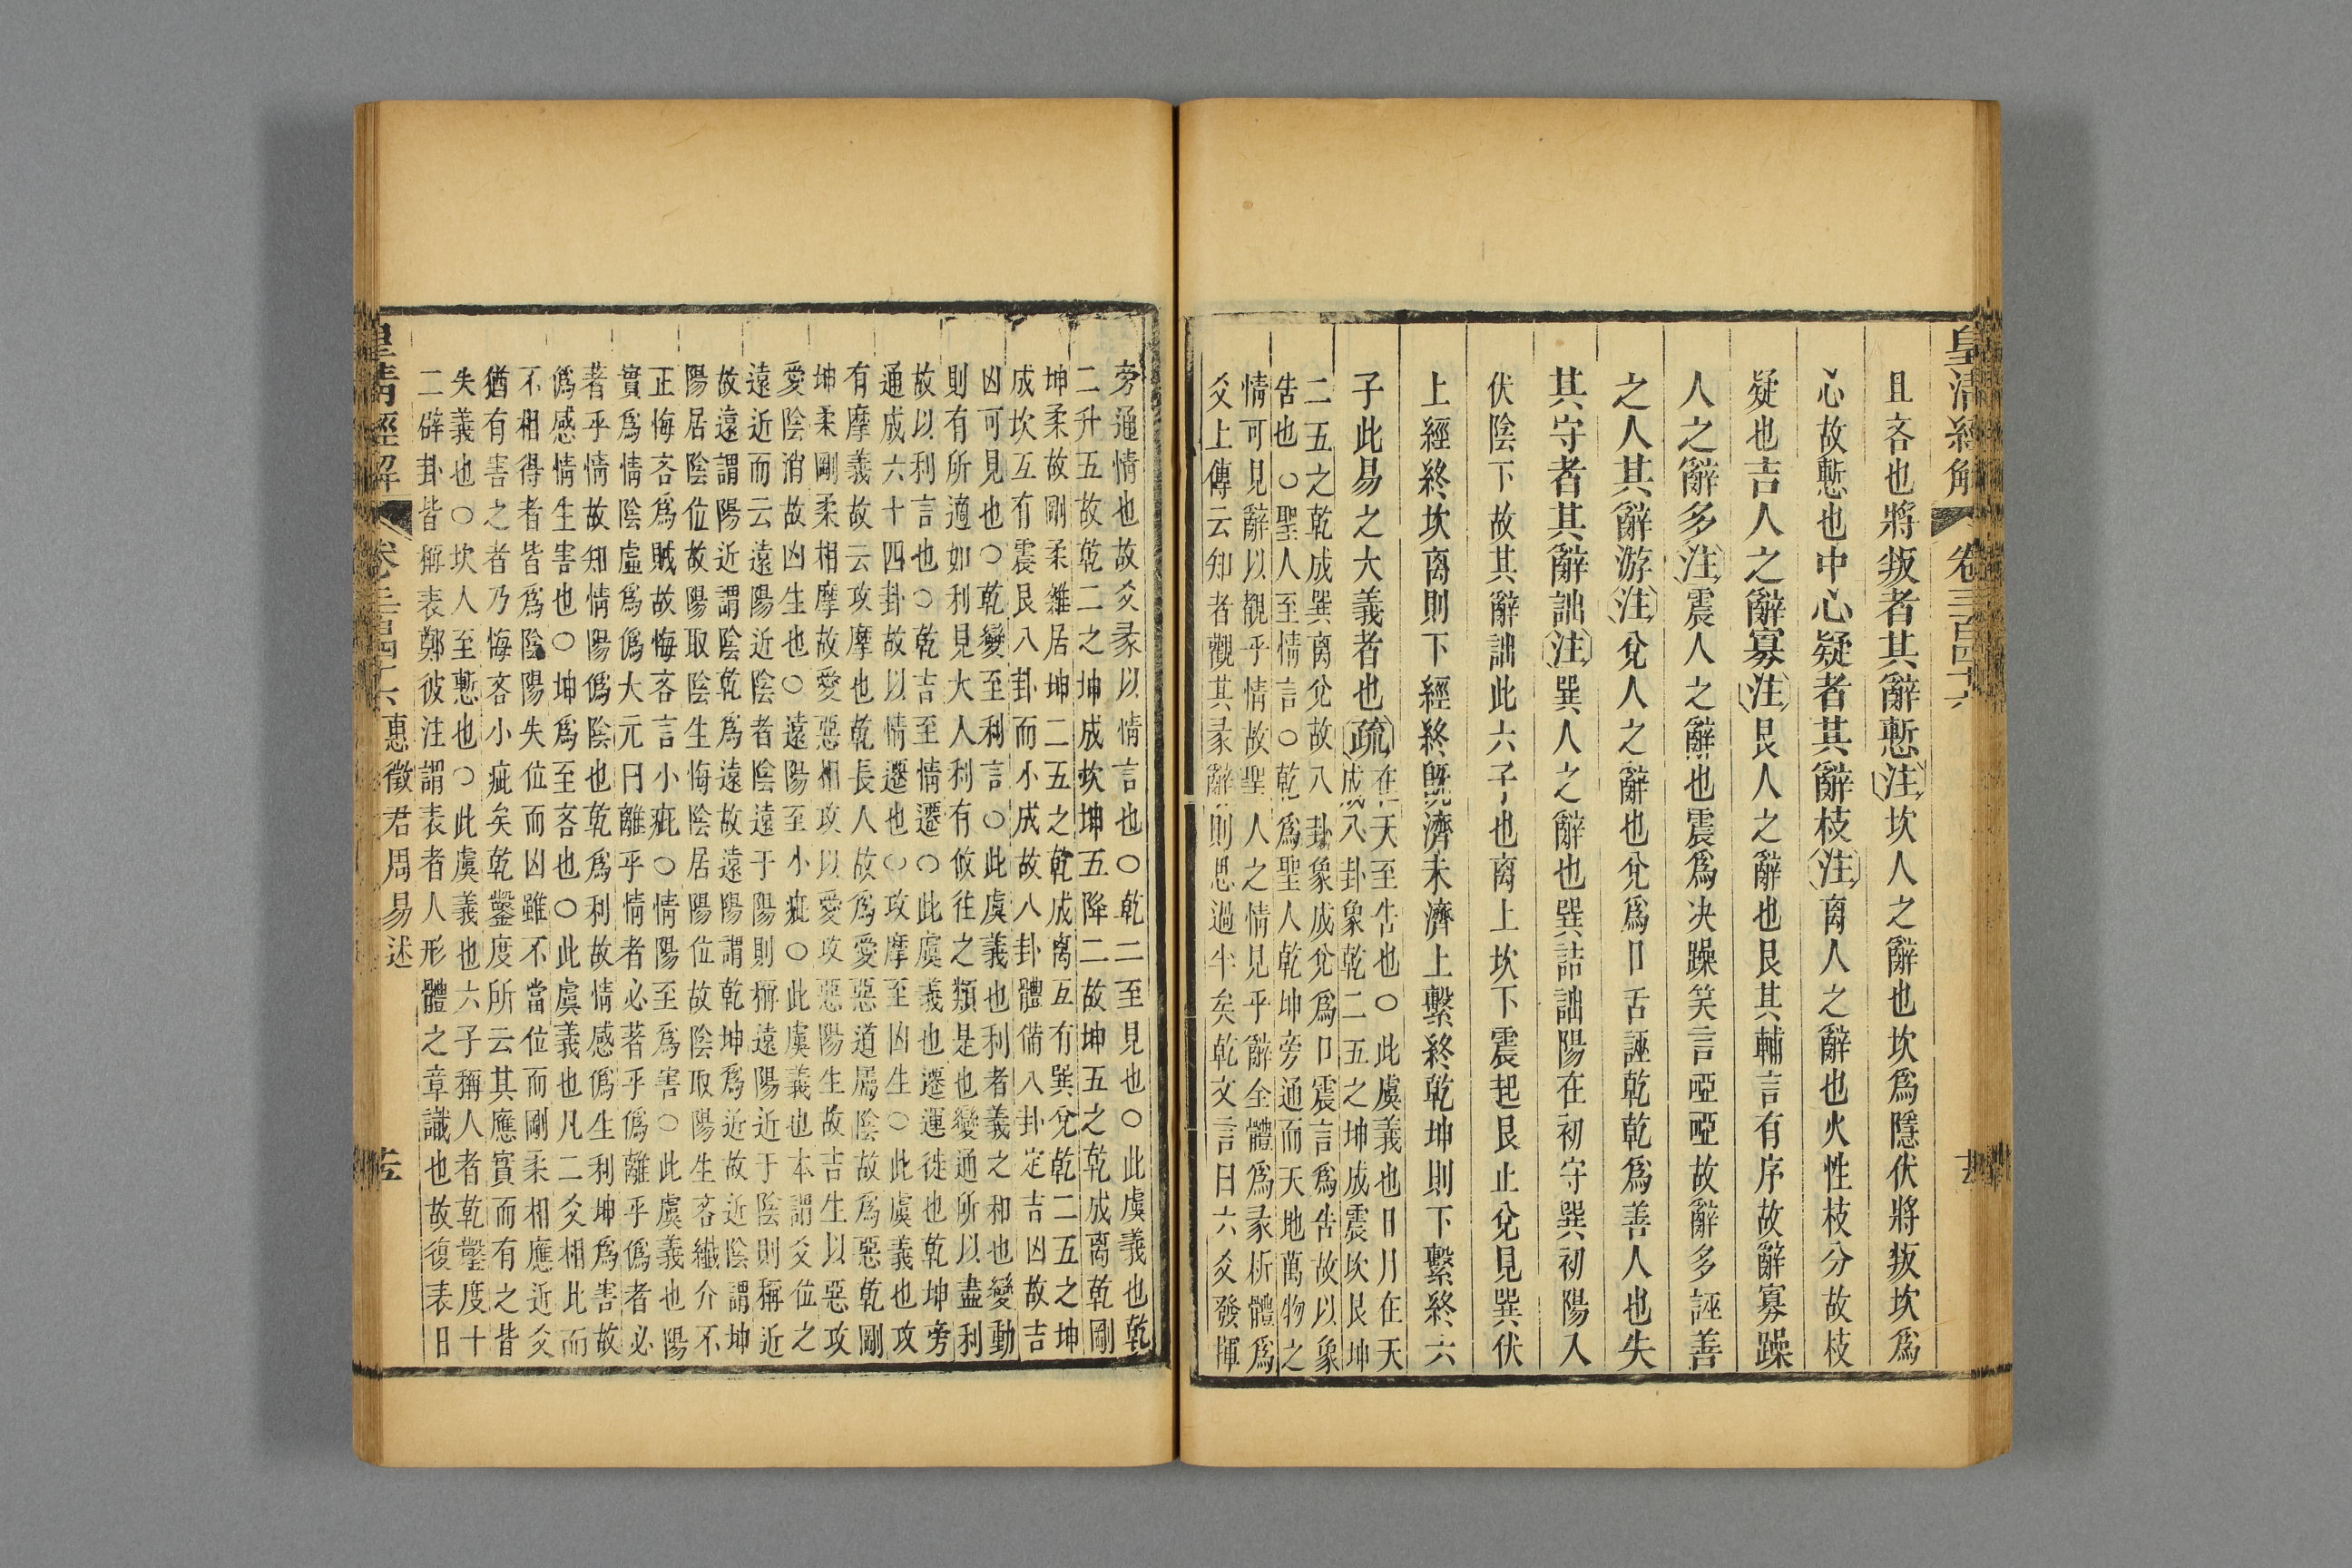 皇清經解
卷三百四十六
且吝也將叛者其辭慙注坎人之辭也坎為隱伏將叛坎為
心故慙也中心疑者其辭枝注离人之辭也火性枝分故枝
疑也吉人之辭寡注艮人之辭也艮其輔言有序故辭寡躁
人之辭多注震人之辭也震為决躁笑言啞啞故辭多誣善
之人其辭游注兌人之辭也兌為口舌誣乾乾為善人也失
其守者其辭詘注巽人之辭也巽詰詘陽在初守巽初陽入
伏陰下故其辭詘此六子也离上坎下震起艮止兌見巽伏
上經終坎离則下經終既濟未濟上繫終乾坤則下繫終六
子此易之大義者也疏在天至吿也○此虞義也日月在天
成八卦象乾二五之坤成震坎艮坤
二五之乾成巽离兌故八卦象成兌為口震言為告故以象
告也○聖人至情言○乾為聖人乾坤旁通而天地萬物之
情可見辭以觀乎情故聖人之情見乎辭全體為彖析體為
爻上傳云知者觀其彖辭則思過半矣乾文言曰六爻發揮
旁通情也故爻彖以情言也○乾二至見也○此虞義也乾
二升五故乾二之坤成坎坤五降二故坤五之乾成离乾剛
坤柔故剛柔雜居坤二五之乾成离互有巽兌乾二五之坤
成坎互有震艮八卦而小成故八卦體備八卦定吉凶故吉
凶可見也○乾變至利言○此虞義也利者義之和也變動
則有所適如利見大人利有攸往之類是也變通所以盡利
故以利言也○乾吉至情遷○此虞義也遷運徙也乾坤旁
通成六十四卦故以情遷也○攻摩至凶生○此虞義也攻
有摩義故云攻摩也乾長人故為愛惡道屬陰故為惡乾剛
坤柔剛柔相摩故愛惡相攻以愛攻惡陽生故吉生以惡攻
愛陰消故凶生也○遠陽至小疵○此虞義也本謂爻位之
遠近而云遠陽近陰者陰遠于陽則稱遠陽近于陰則稱近
故遠謂陽近謂陰乾為遠故遠陽謂乾坤為近故近陰謂坤
陽居陰位故陽取陰生悔陰居陽位故陰取陽生吝纖介不
正悔吝為賊故悔吝言小疵○情陽至為害○此虞義也陽
實為情陰虛為偽大元曰離乎情者必著乎偽離乎偽者必
著乎情故知情陽偽陰也乾為利故情感偽生利坤為害故
偽感情生害也○坤為至吝也○此虞義也凡二爻相比而
不相得者皆為陰陽失位而凶雖不當位而剛柔相應近爻
猶有害之者乃悔吝小疵矣乾鑿度所云其應實而有之皆
失義也○坎人至慙也○此虞義也六子稱人者乾鑿度十
二辟卦皆稱表鄭彼注謂表者人形體之章識也故復表日
皇清經解
卷三百四十六
惠徵君周易述